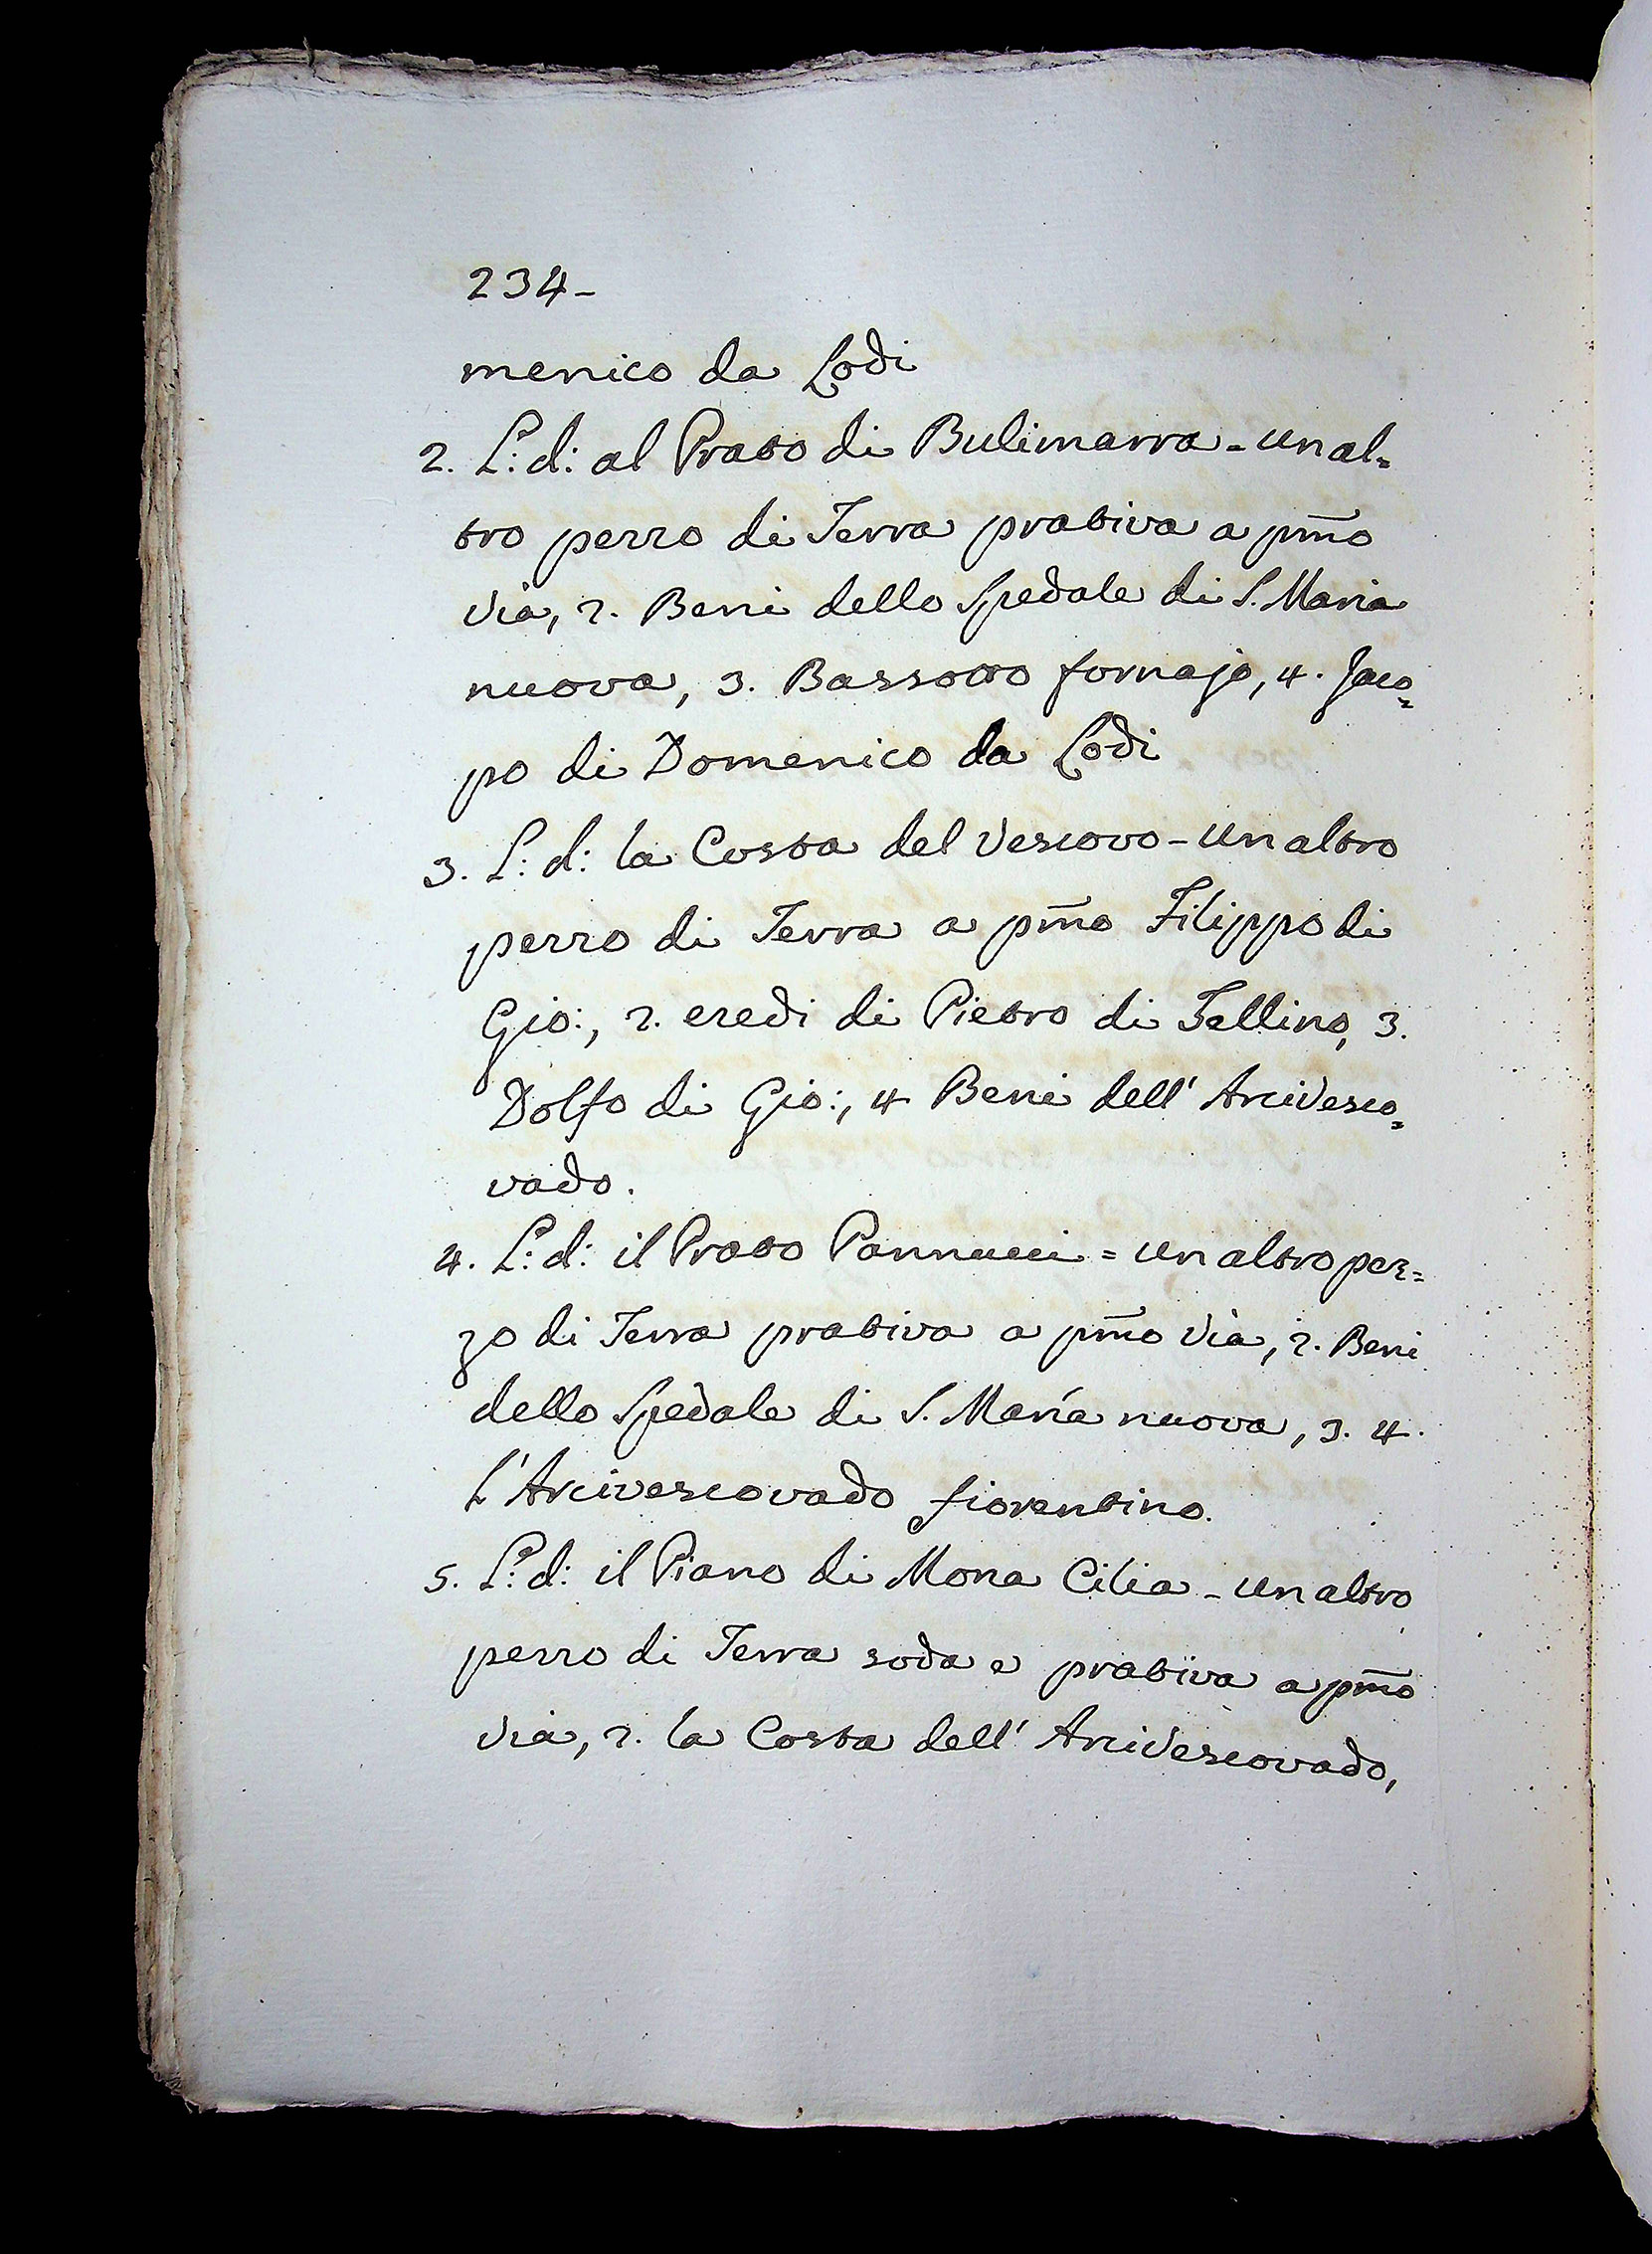 234-
menico da Lodi
2. L: d: al Prato di Bulimarra - un al=
tro pezzo di Terra prativa a pm̃o
via, 2. Beni dello Spedale di S. Maria
nuova, 3. Bassotto fornajo, 4. Jaco=
po di Domenico da Lodi
3. L: d: la Costa del Vescovo - un altro
pezzo di Terra a pm̃o Filippo di
Gio:, 2. eredi di Pietro di Tellino, 3.
Dolfo di Gio:, 4 Beni dell' Arcivesco=
vado.
4. L: d: il Prato Pannucci = un altro pez=
zo di Terra prativa a pm̃o via, 2. Beni
dello Spedale di S. Maria nuova, 3. 4.
l'Arcivescovado fiorentino.
5. L: d: il Piano di Mona Cilia - un altro
pezzo di Terra soda e prativa a pm̃o
via, 2. la Costa dell' Arcivescovado,